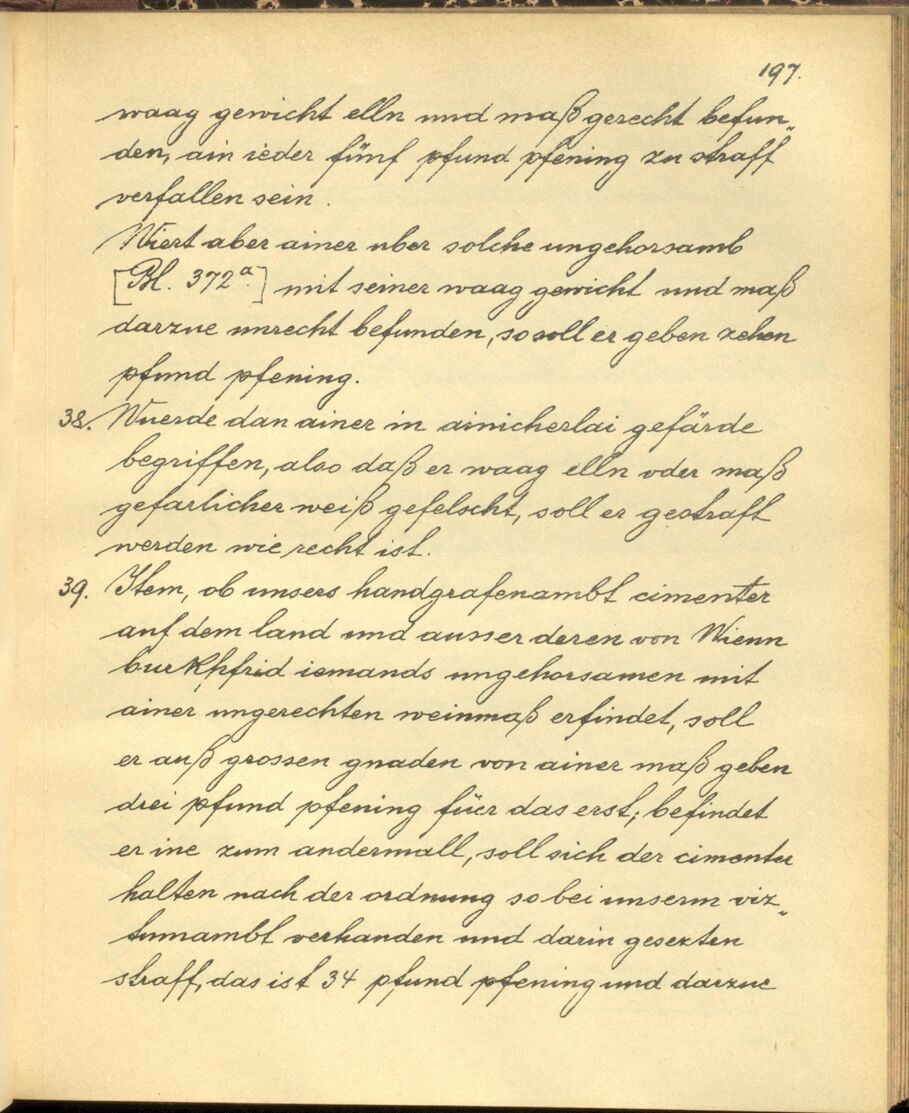 197.
waag gewicht elln und maß gerecht befun„
den, ain ieder fünf pfund pfening zu straff
verfallen sein.
Wiert aber ainer uber solche ungehorsamb
[Bl. 372a.] mit seiner waag gewicht und maß
darzue unrecht befunden, so soll er geben zehen
pfund pfening.
38. Wuerde dan ainer in ainicherlai gefärde
begriffen, also daß er waag elln oder maß
gefarlicher weiß gefelscht, soll er gestraft
werden wie recht ist.
39. Item, ob unsers handgrafenambt cimenter
auf dem land und ausser deren von Wienn
burkhfrid iemands ungehorsamen mit
ainer ungerechten weinmaß erfindet, soll
er auß grossen gnaden von ainer maß geben
drei pfund pfening füer das erst; befindet
er ine zum andermall, soll sich der cimenter
halten nach der ordnung so bei unserm viz„
tumambt verhanden und darin gesezten
straff, das ist 34 pfund pfening und darzue